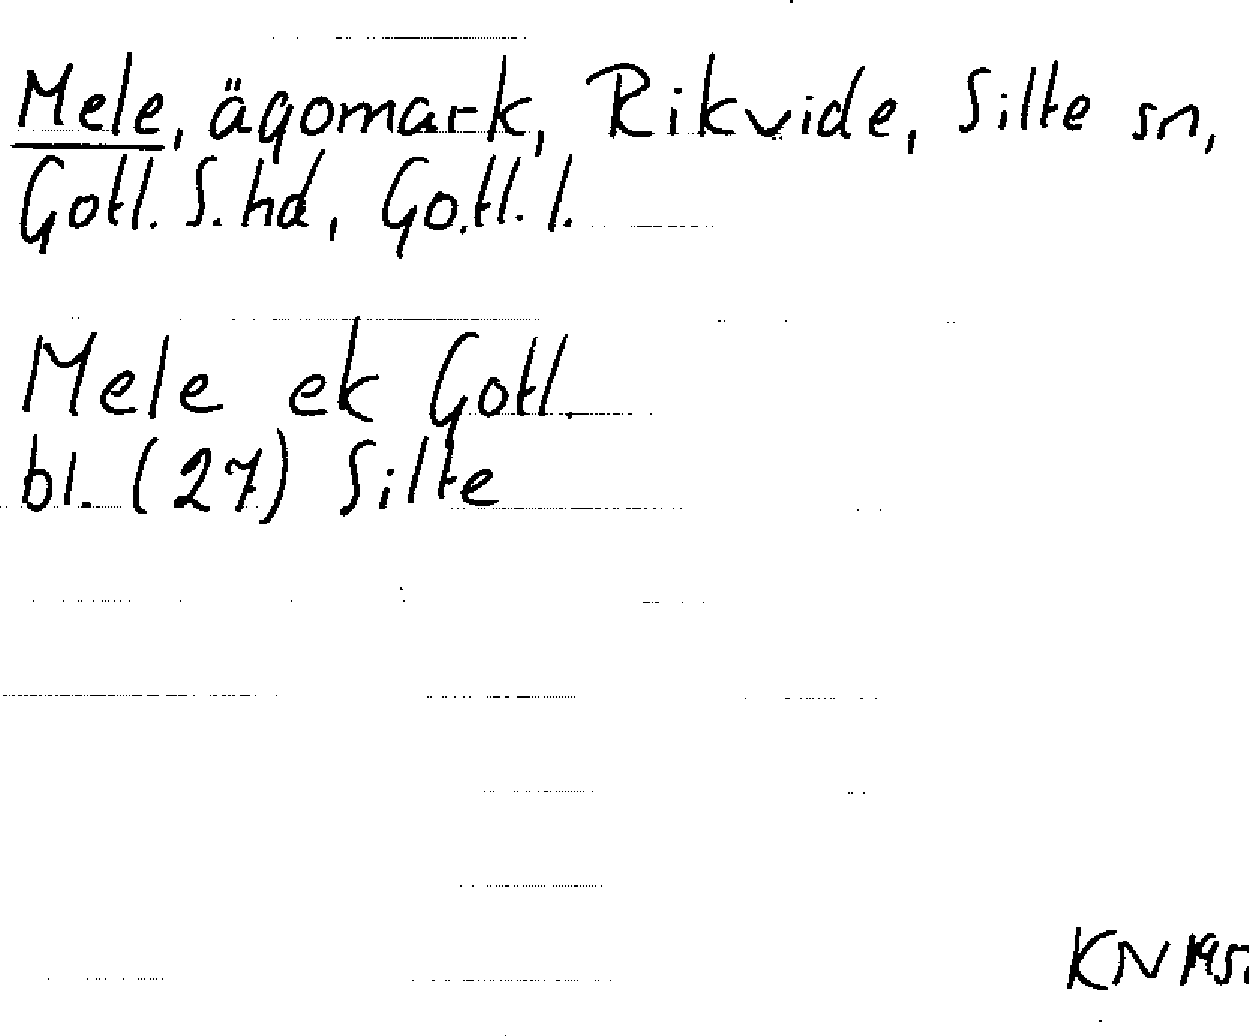 Mele, ägomark, Rikvide, Silte sn,
Gotl. S. hd, Gotl. l.
Mele ek Gotl.
bl. (27) Silte
KN